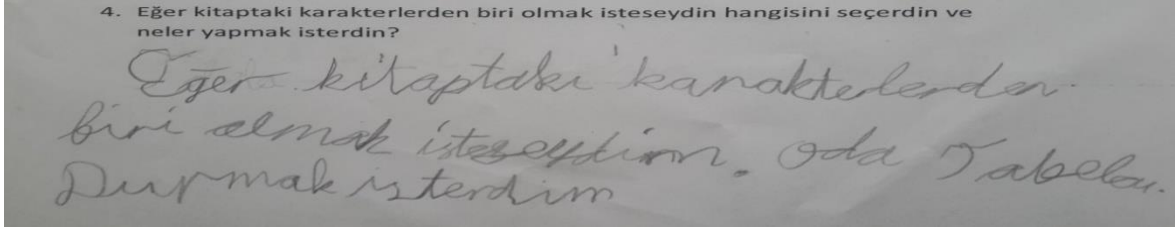 4. Eğer kitaptaki karakterlerden biri olmak isteseydin hangisini seçerdin ve
neler yapmak isterdin?
Eğer kitaptaki karakterlerden
biri olmak isteseydim. Oda Tabela.
Durmak isterdim